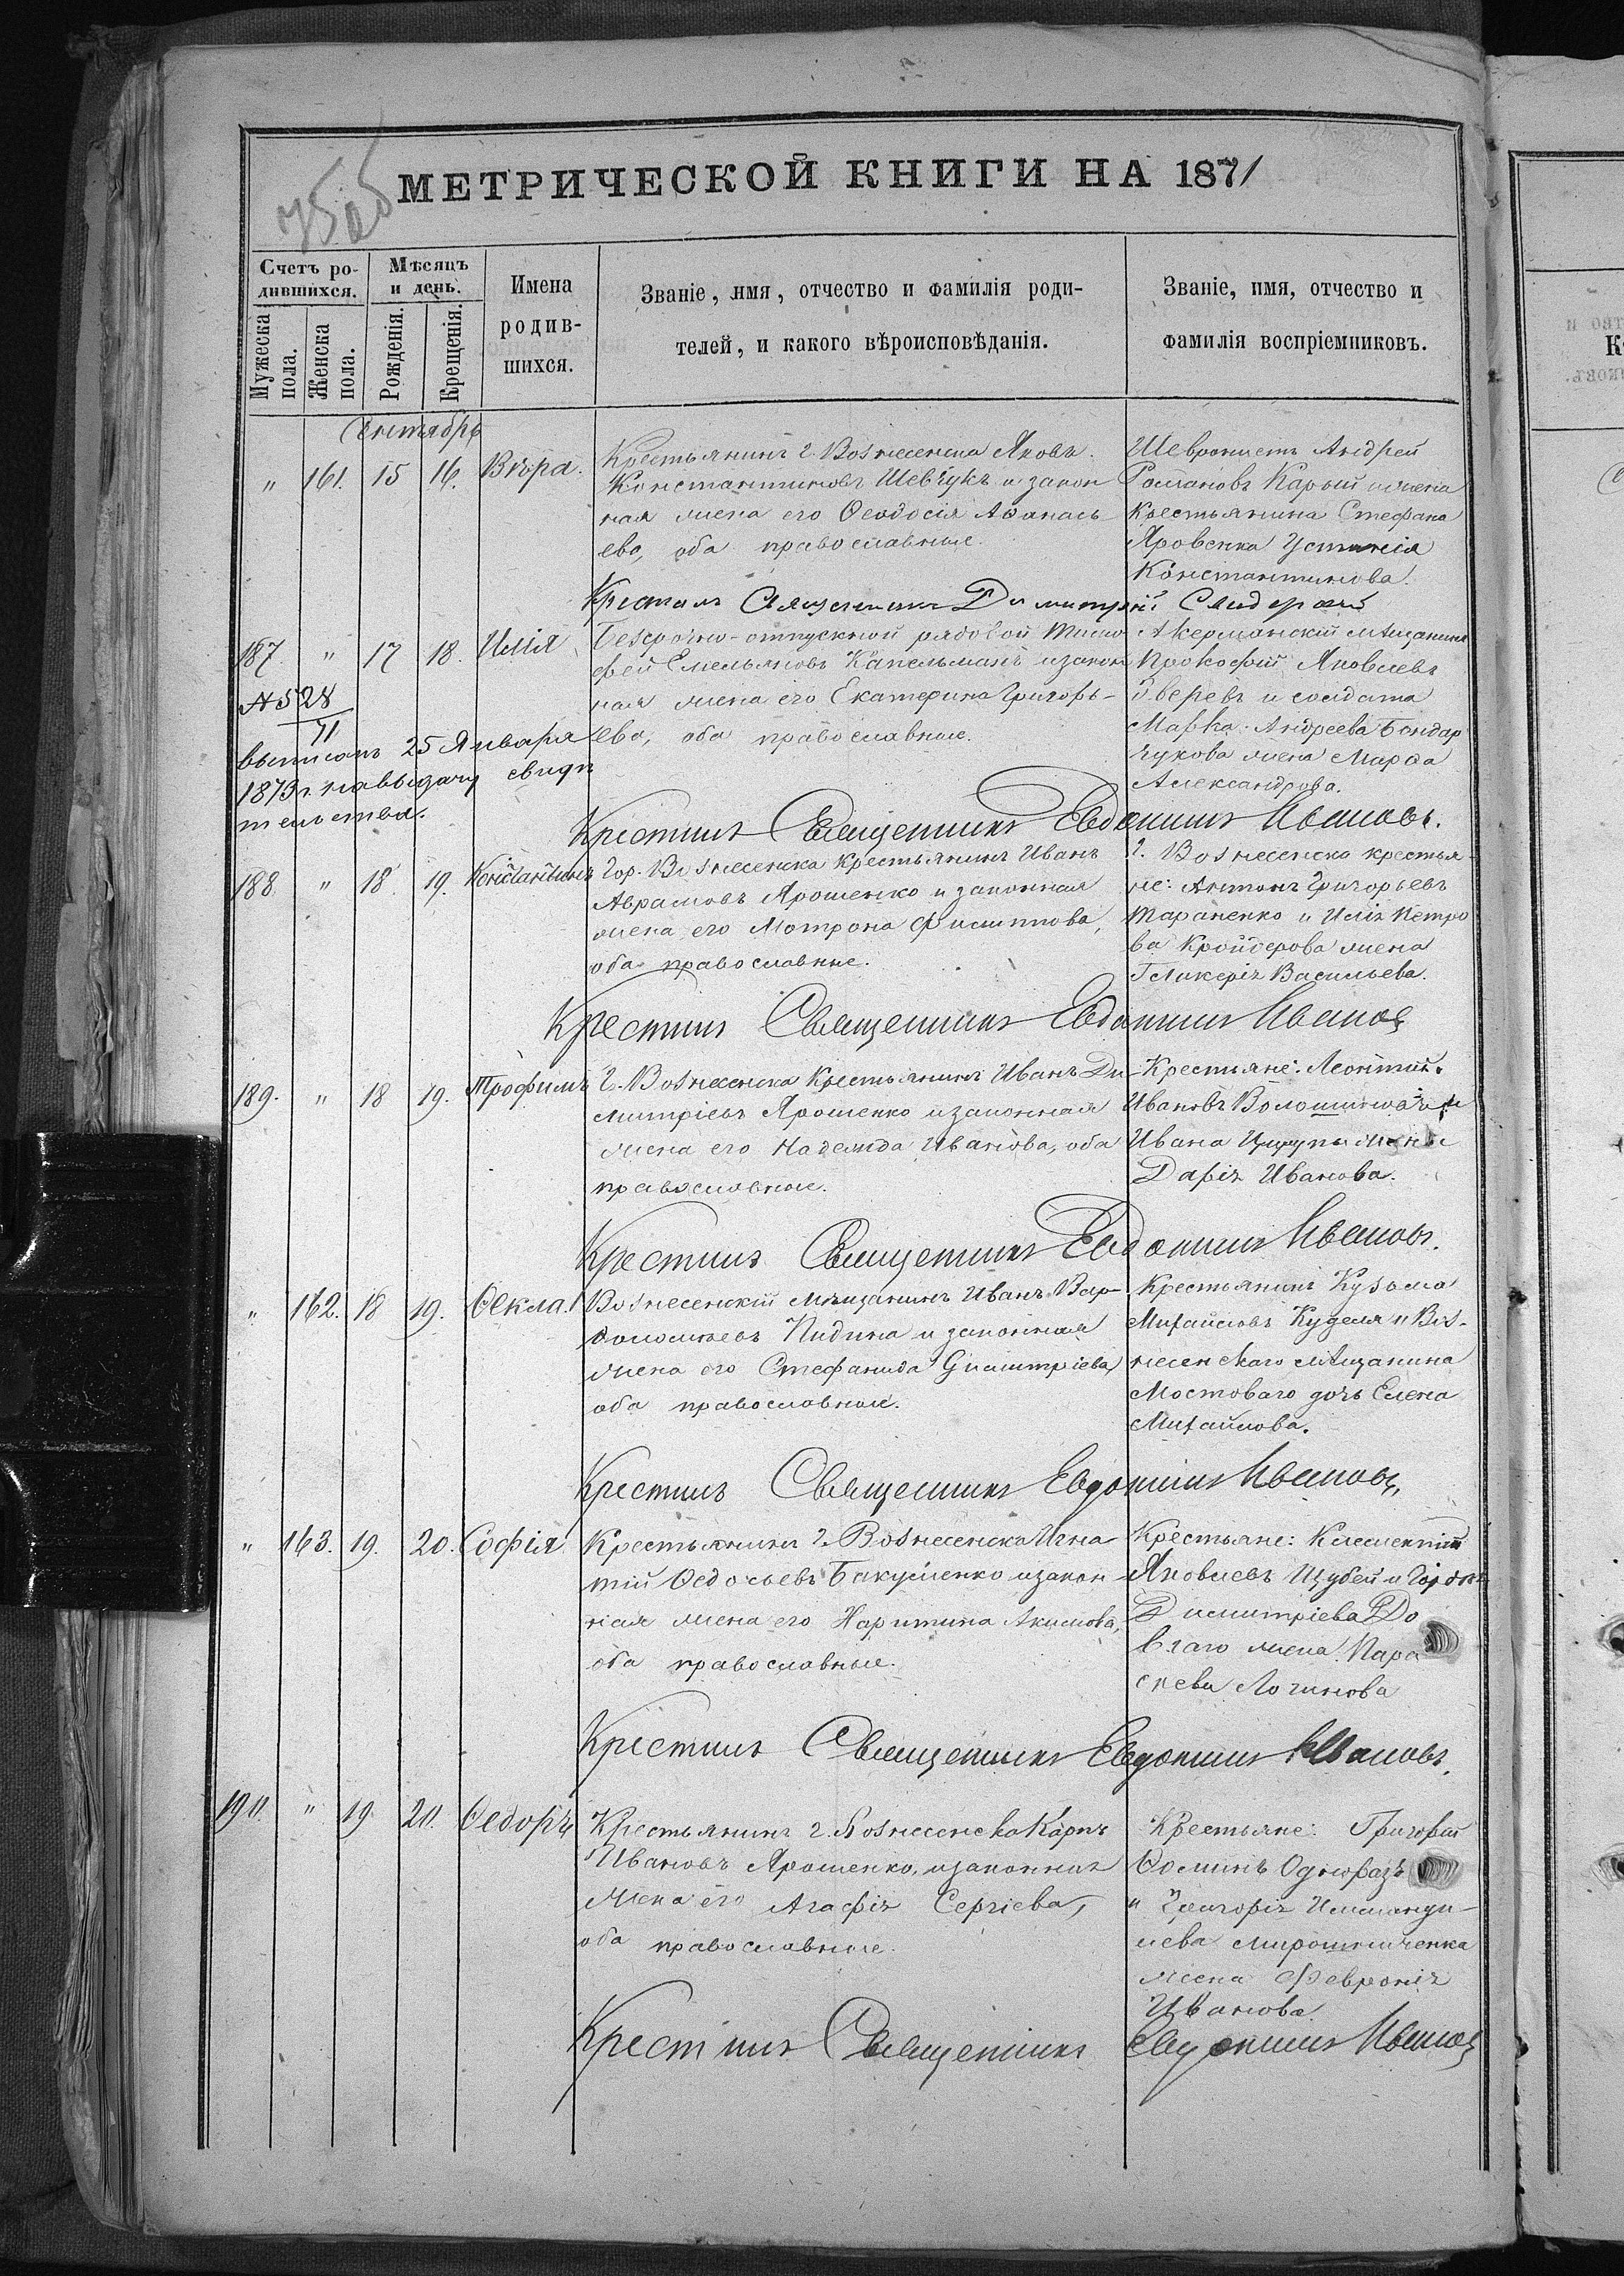 75об
МЕТРИЧЕСКОЙ КНИГИ НА 1871
Счетъ ро-
дившихся.
Мѣсяцъ
и день.
Мужеска
пола.
Женска
пола.
Рожденія.
Крещенія.
Имена
родив-
шихся.
Званіе, имя, отчество и фамилія роди-
телей, и какого вѣроисповѣданія.
Званіе, имя, отчество и
фамилія воспріемниковъ.
Сентябрь
" 161. 15 16. Вѣра.
Крестьянинъ г. Вознесенска Яковъ
Константиновъ Шевчукъ и закон
ная жена его Ѳеодосія Аѳанась
ева, оба православные.
Шевронистъ Андрей
Романовъ Карый и жена
Крестьянина Стефана
Яровенка Устинія
Константинова.
Крестилъ Священникъ Димитрій
187. " 17 18. Илія
Безсрочно-отпускной рядовой Тимо
фей Емельяновъ Капельманъ и закон
ная жена его Екатерина Григорь-
ева, оба православные.
Акерманскій мѣщанинъ
Прокофій Яковлевъ
Зверевъ и солдата
Марка Андреева Бондар
чукова жена Марѳа
Александрова.
№ 528
71
выписанъ 25 Января
1873 г. на выдачу свидѣ
тельства.
Крестилъ Священникъ Евдокимъ Ивановъ.
188. " 18. 19. Константинъ
Гор. Вознесенска крестьянинъ Иванъ
Авраамовъ Ярошенко и законная
жена его Мотрона Филиппова,
оба православные.
г. Вознесенска крестья-
не: Антонъ Григорьевъ
Тараненко и Иліи Петро
ва Кройдерова жена
Гликерія Васильева.
Крестилъ Священникъ Евдокимъ Ивановъ
189. " 18 19. Трофимъ
г. Вознесенска Крестьянинъ Иванъ Ди-
митріевъ Ярошенко и законная
жена его Надежда Иванова, оба
православные.
Крестьяне: Леонтій
Ивановъ и
Ивана жена
Дарія Иванова.
Крестилъ Священникъ Евдокимъ Ивановъ.
" 162. 18 19. Ѳекла.
Вознесенскій мѣщанинъ Иванъ Вар-
ѳоломѣевъ Пидина и законная
жена его Стефанида Димитріева,
оба православные.
Крестьянинъ Кузьма
Михайловъ Куделя и Воз-
несенскаго мѣщанина
Мостоваго дочь Елена
Михайлова.
Крестилъ Священникъ Евдокимъ Ивановъ,
" 163. 19. 20. Софія
Крестьянинъ г. Вознесенска Игна
тій Ѳедосьевъ Бакуменко и закон
ная жена его Харитина Акимова,
оба православные.
Крестьяне: Климентій
Яковлевъ
Димитріева До
вгаго жена Пара
скева Логинова
Крестилъ Священникъ Евдокимъ Ивановъ.
190. " 19. 20. Ѳедоръ
Крестьянинъ г. Вознесенска Карпъ
Ивановъ Ярошенко, и законная
жена его Агафія Сергіева,
оба православные.
Крестьяне: Григорій
Ѳоминъ
и Григорія
иева Мирошниченка
жена Февронія
Иванова.
Крестилъ Священникъ Евдокимъ Ивановъ